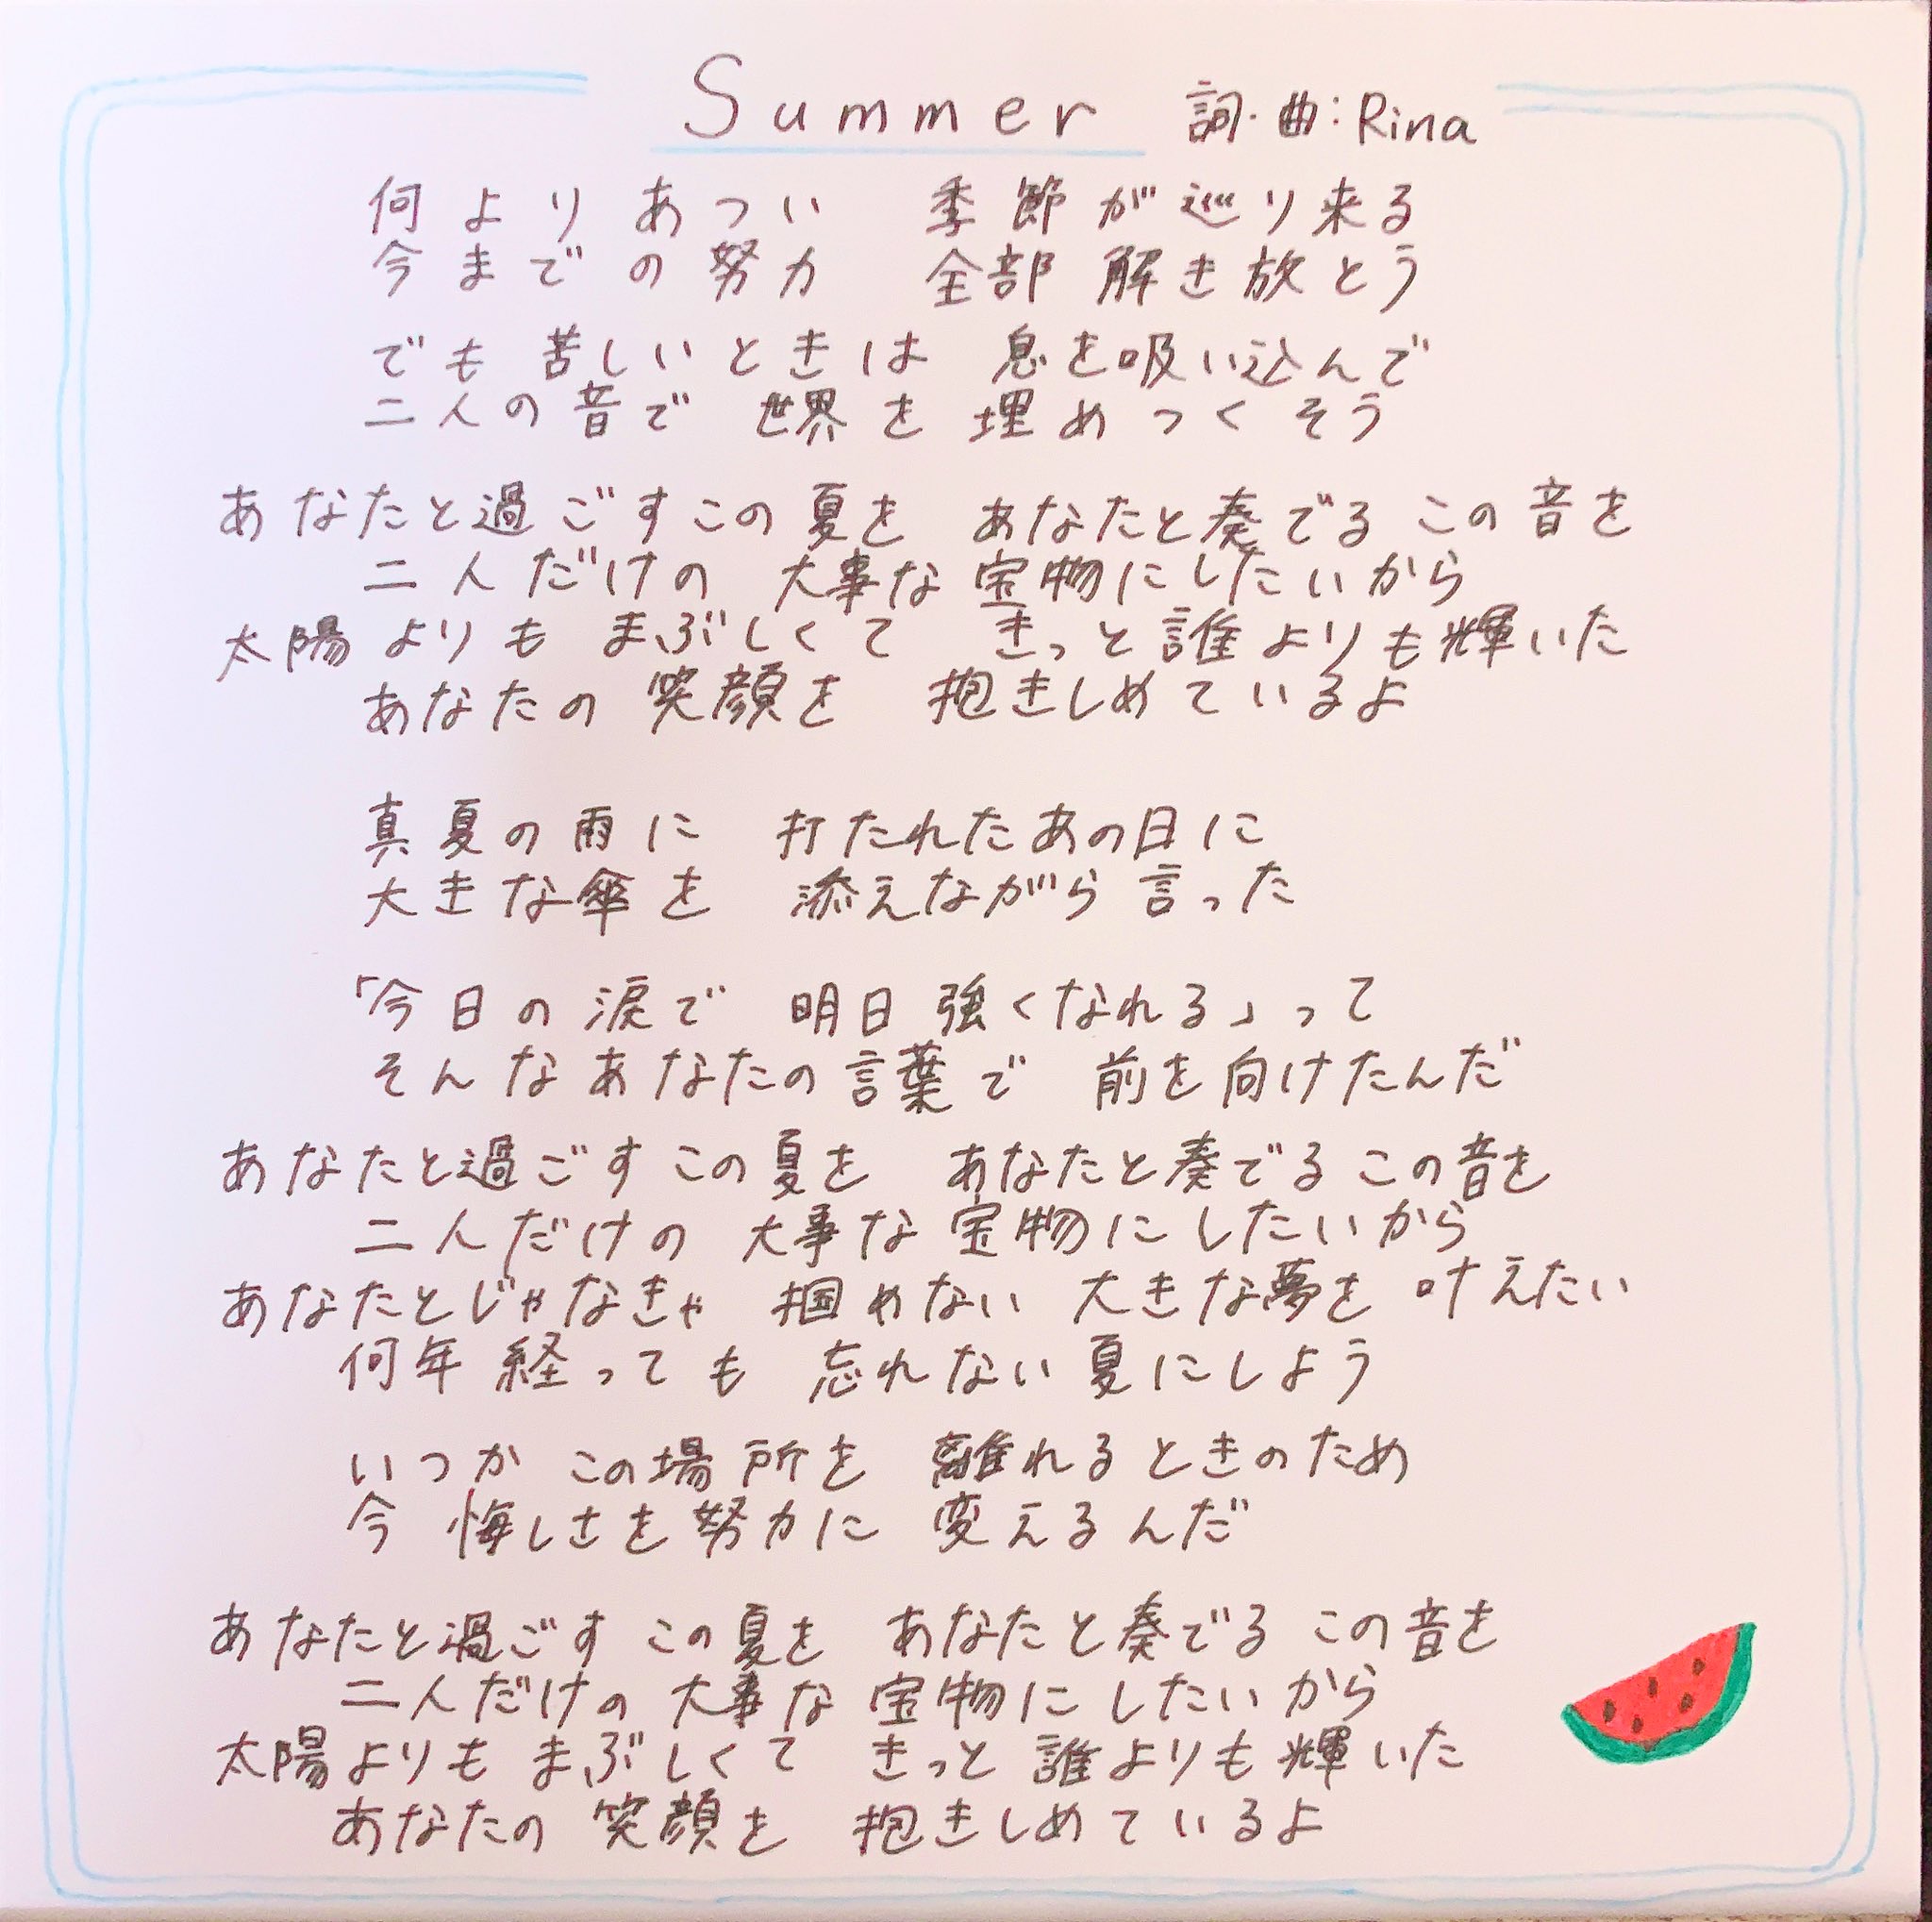 Summer 詞・曲：Rina
何よりあつい 季節が巡り来る
今までの努力 全部解き放とう
でも苦しいときは 息を吸い込んで
二人の音で 世界を埋めつくそう
あなたと過ごすこの夏を あなたと奏でるこの音を
二人だけの 大事な宝物にしたいから
太陽よりもまぶしくて きっと誰よりも輝いた
あなたの笑顔を 抱きしめているよ
真夏の雨に 打たれたあの日に
大きな傘を 添えながら言った
「今日の涙で 明日強くなれる」って
そんなあなたの言葉で 前を向けたんだ
あなたと過ごすこの夏を あなたと奏でるこの音を
二人だけの 大事な宝物にしたいから
あなたとじゃなきゃ 掴めない 大きな夢を叶えたい
何年経っても 忘れない夏にしよう
いつか この場所を 離れるときのため
今 悔しさを努力に 変えるんだ
あなたと過ごすこの夏を あなたと奏でるこの音を
二人だけの 大事な宝物にしたいから
太陽よりもまぶしくて きっと誰よりも輝いた
あなたの笑顔を 抱きしめているよ